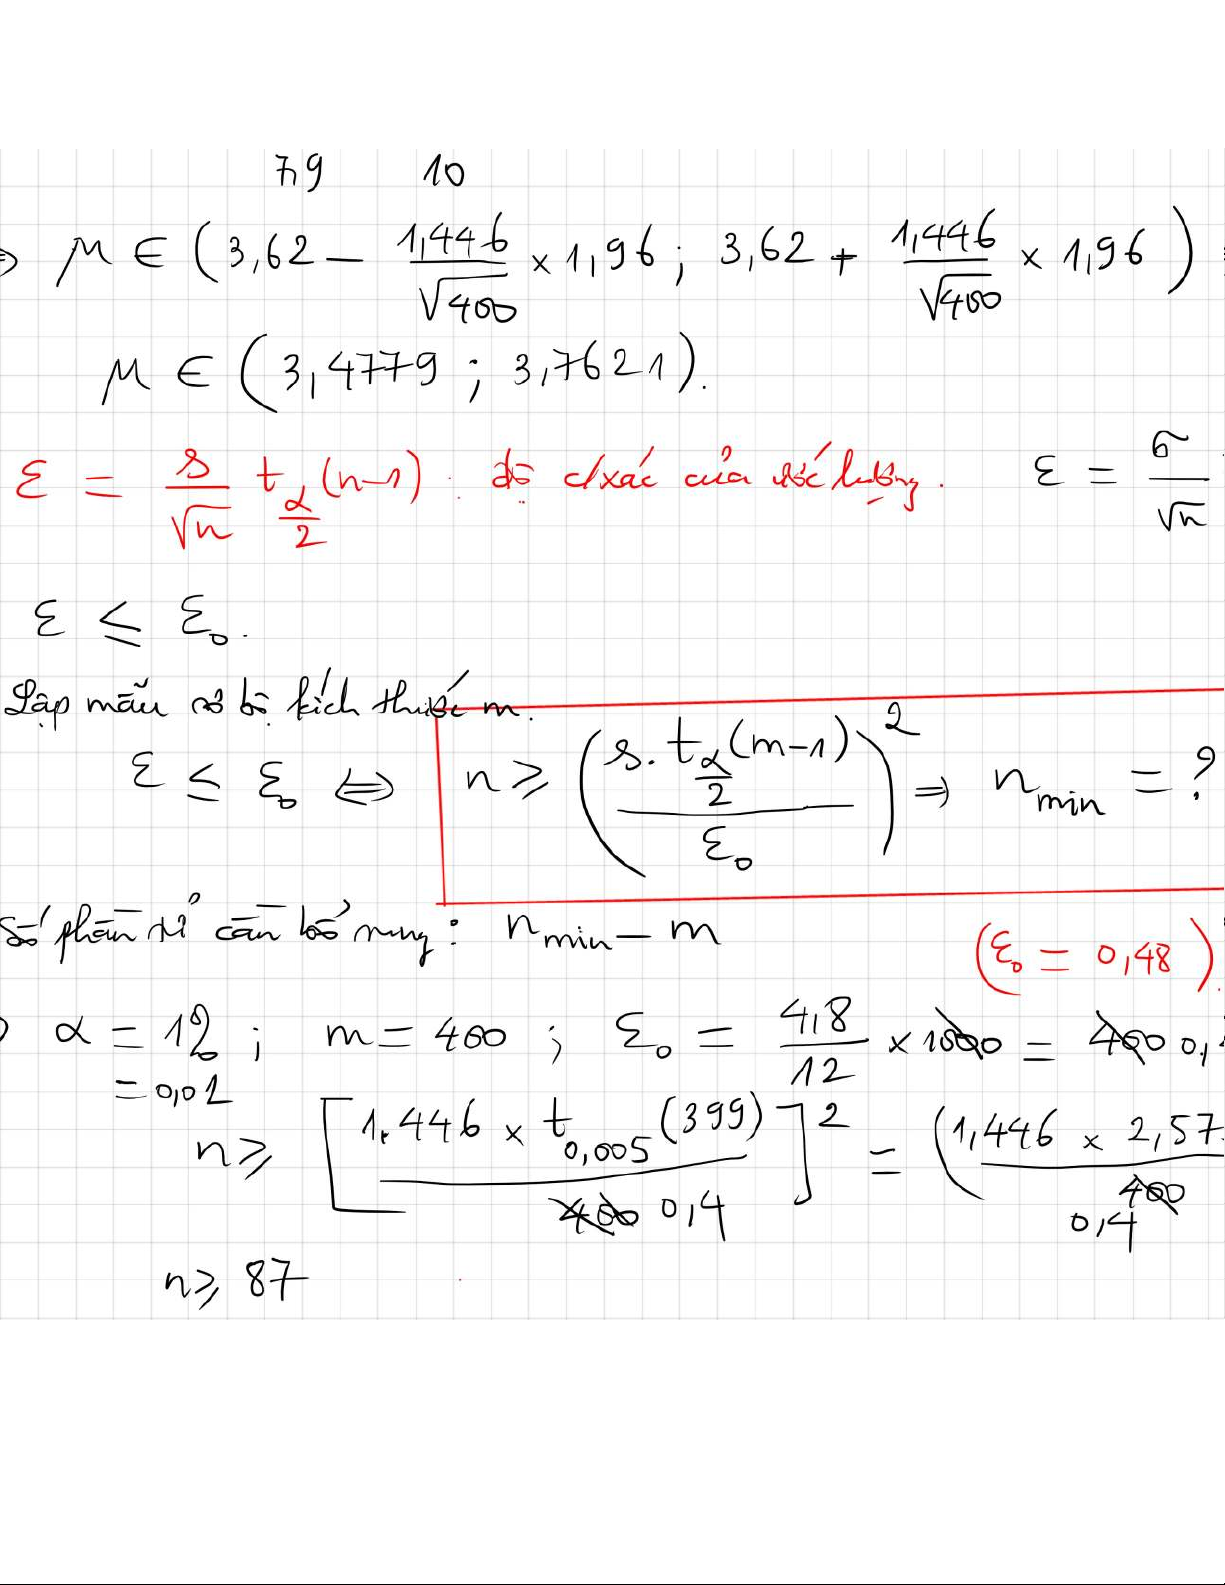 7,9 10
μ ∈ (3,62 − 1,446/√400 × 1,96 ; 3,62 + 1,446/√400 × 1,96)
μ ∈ (3,4779 ; 3,7621).
ε = s/√n t_{α/2}(n−1) : độ c/xác của ước lượng. ε = σ/√n
ε ≤ ε₀.
Lập mẫu sơ bộ kích thước m.
ε ≤ ε₀ ⇔ n ≥ (s. t_{α/2}(m−1) / ε₀)² ⇒ n_min = ?
Số phần tử cần bổ sung : n_min − m
(ε₀ = 0,48).
α = 1% ; m = 400 ; ε₀ = 4,8/12 × 1000 = 400 0,
= 0,01
n ≥ [1,446 × t_{0,005}(399) / 400 0,4]² = (1,446 × 2,57 / 400 0,4
n ≥ 87